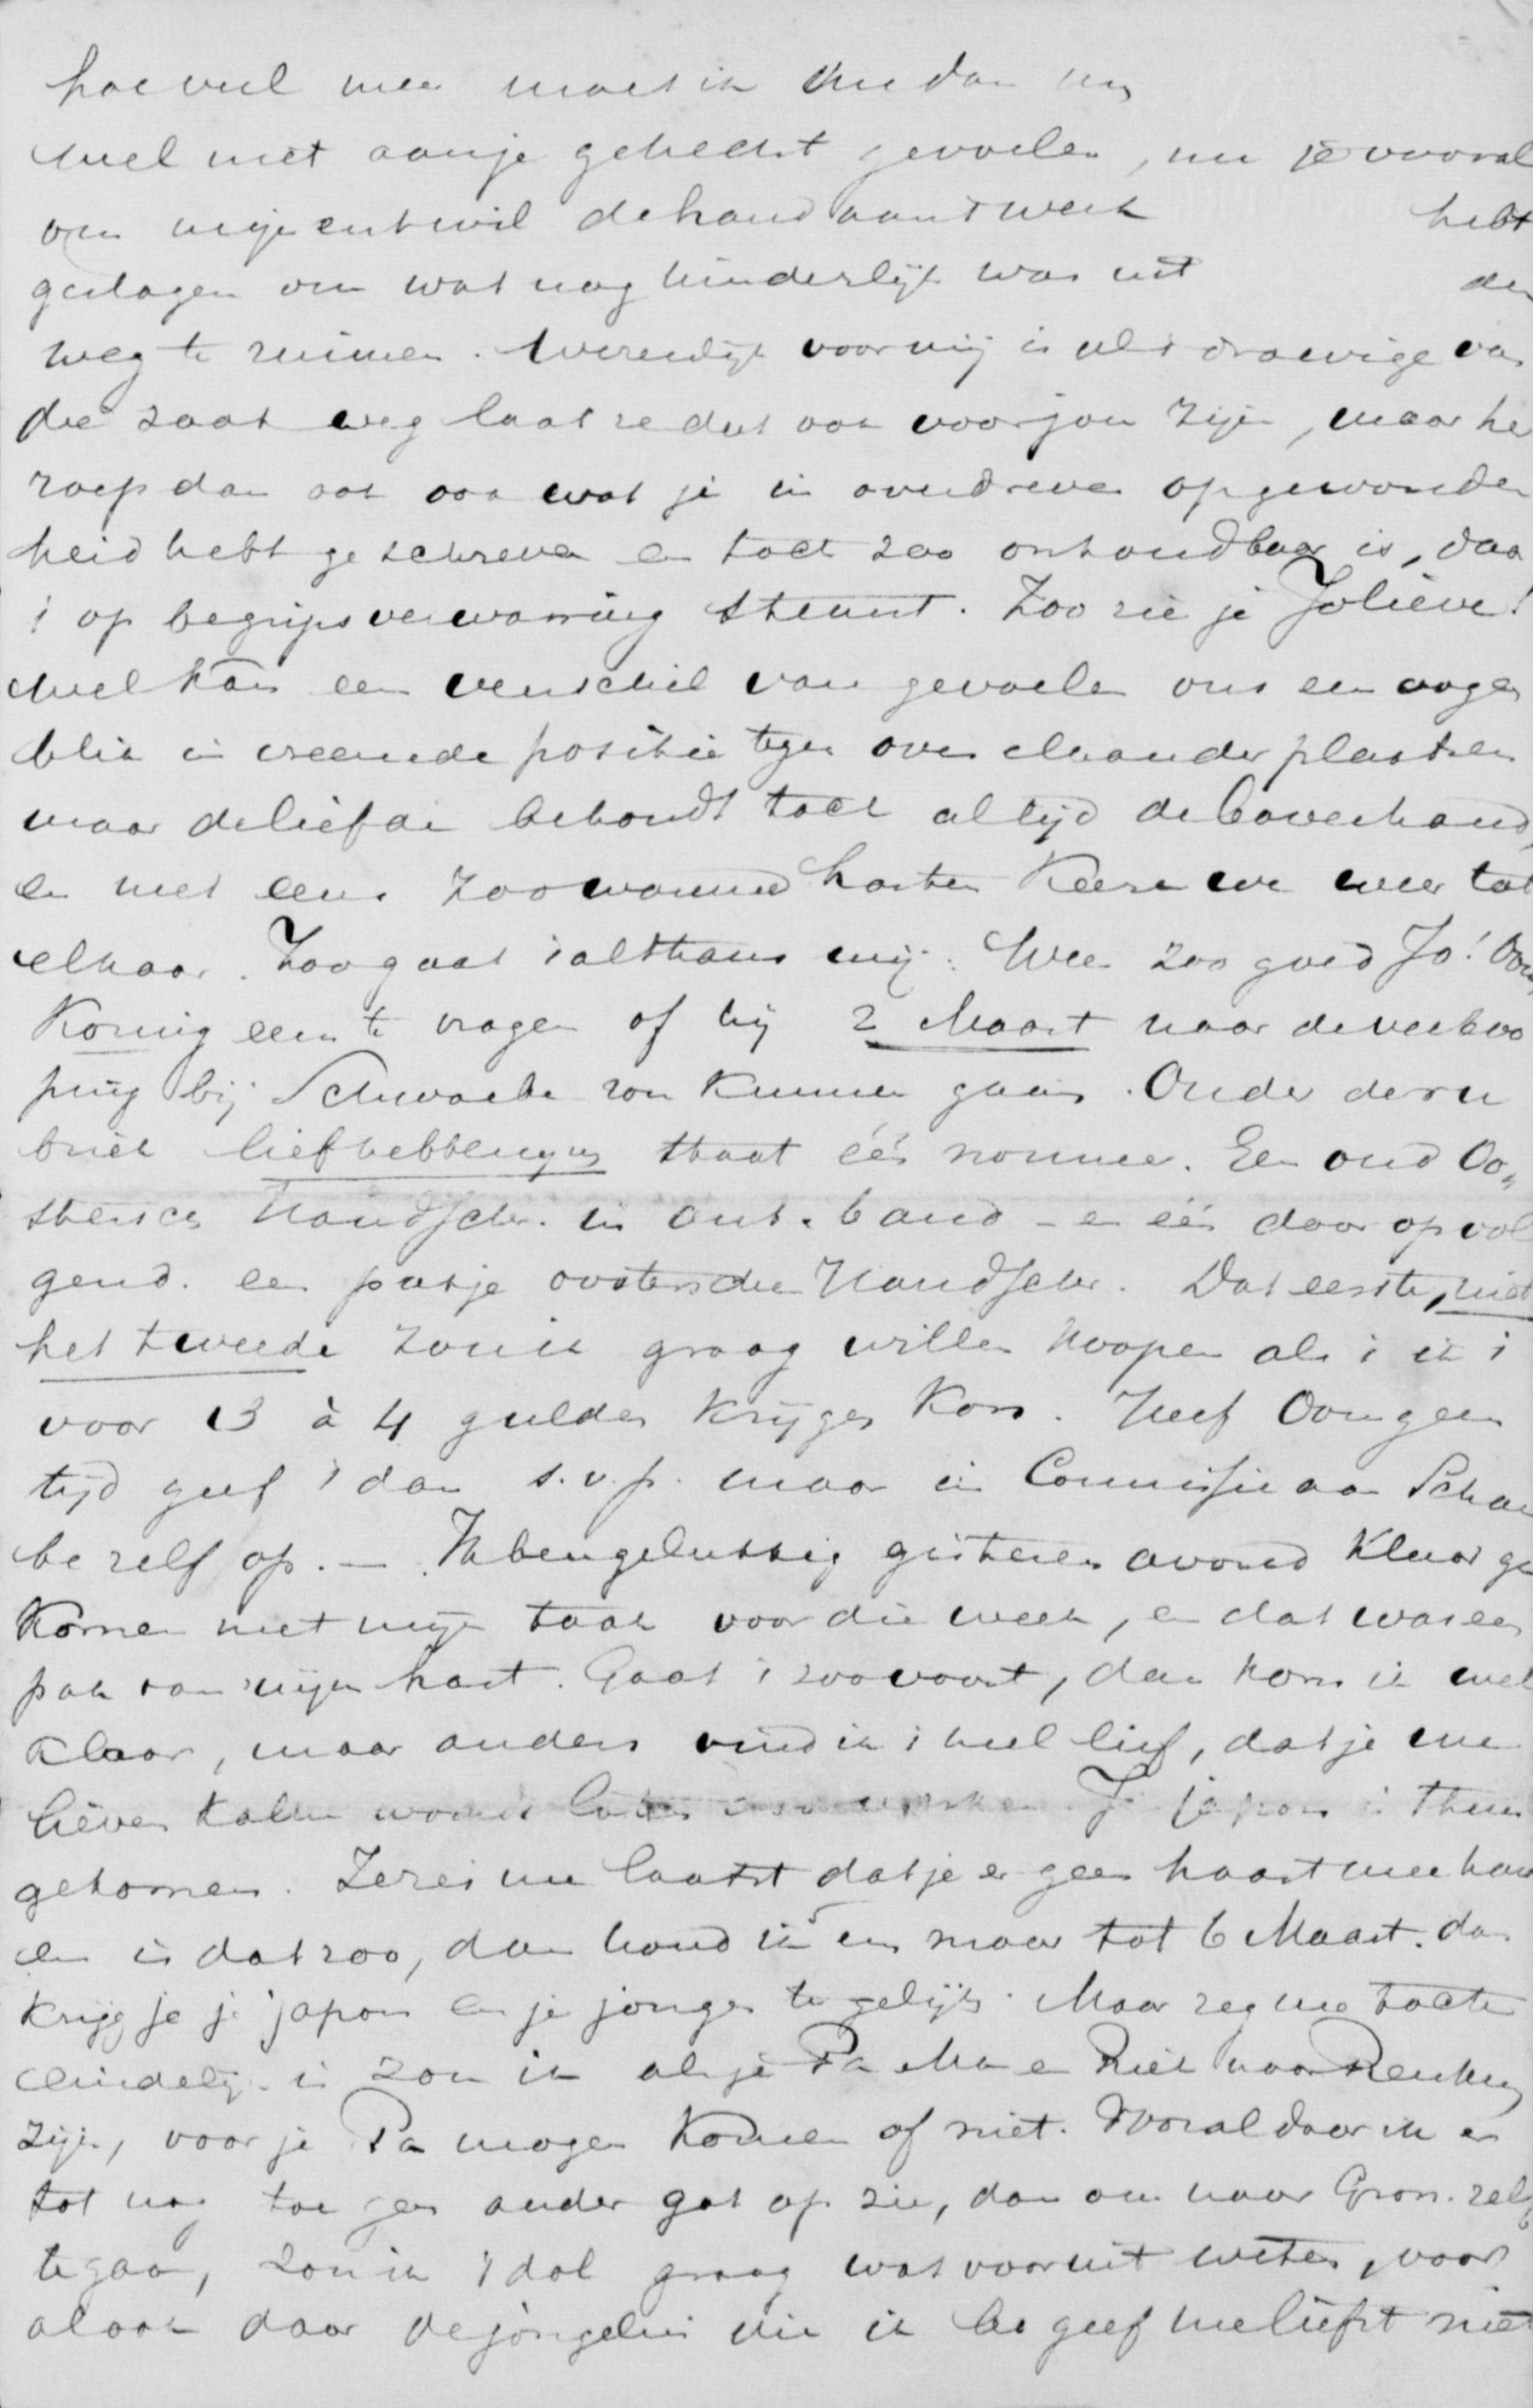 hoeveel meer moet ik me dan nu
wel niet aan je gehecht gevoelen, nu je vooral
om mijnentwil de hand aan 't werk hebt
geslagen om wat nog hinderlijk was uit den
weg te ruimen. Werendijk voor mij is al 't droevige van
die zaak weg laat ze dat ook voor jou zijn, maar he
roep dan ook ook wat je in overdreven opgewonden
heid hebt geschreven en toch zoo onhoudbaar is, daar
't op begripsverwarring steunt. Zoo zie je Jolieve!
wel kan een verschil van gevoelen ons een oogen
blik in vreemde positie tegen over elkander plaatsen
maar de liefde behoudt toch altijd de bovenhand,
en met eens zoo warme harten keeren we weer tot
elkaar. Zoo gaat 't althans mij. Wees zoo goed Jo! Oom
Koning eens te vragen of hij 2 Maart naar de verkoo
ping bij Schwabe zou kunnen gaan. Onder de ru
briek liefhebberijen staat één nommer. Een oud Oo
stersch Handschr. in ouden band - en één daarop vol
gend. een pakje oostersche Handschr. Dat eerste, niet
het tweede zou ik graag willen koopen als ik 't
voor 3 à 4 gulden krijgen kon. Heeft Oom geen
tijd geef 't dan s.v.p. maar in Commissie aan Schwa
be zelf op. — Ik ben gelukkig gisteren avond klaar ge
komen met mijn taak voor die week, en dat was een
pak van mijn hart. Gaat 't zoo voort, dan kom ik wel
klaar, maar anders vind ik 't heel lief, dat je me
liever kalm je japon is thuis
gekomen. Je zei me laatst dat je er geen haast mee hadt
en is dat zoo, dan houd ik 'em maar tot 6 Maart. dan
krijg je je japon en je jongen te gelijk. Maar zeg me toch
eindelijk is zou ik als je Pa Ma en Riek naar Renkum
zijn, voor je Pa mogen komen of niet. Vooral daar ik er
tot nog toe geen ander gat op zie, dan om naar Gron. zelf
te gaan, zou ik 't dol graag wat vooruit weten, voor
al ook daar de jongelui die ik les geef me liefst niet